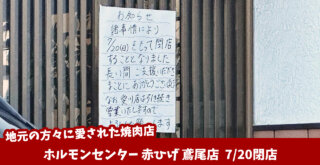 お知らせ
諸事情により
7/20(日)をもって閉店
することとなりました
長い間ご支援いただき
まことにありがとうござい
なお登り店は引き続き
営業いたしますので
ます
地元の方々に愛された焼肉店
ホルモンセンター 赤ひげ 鳶尾店 7/20閉店